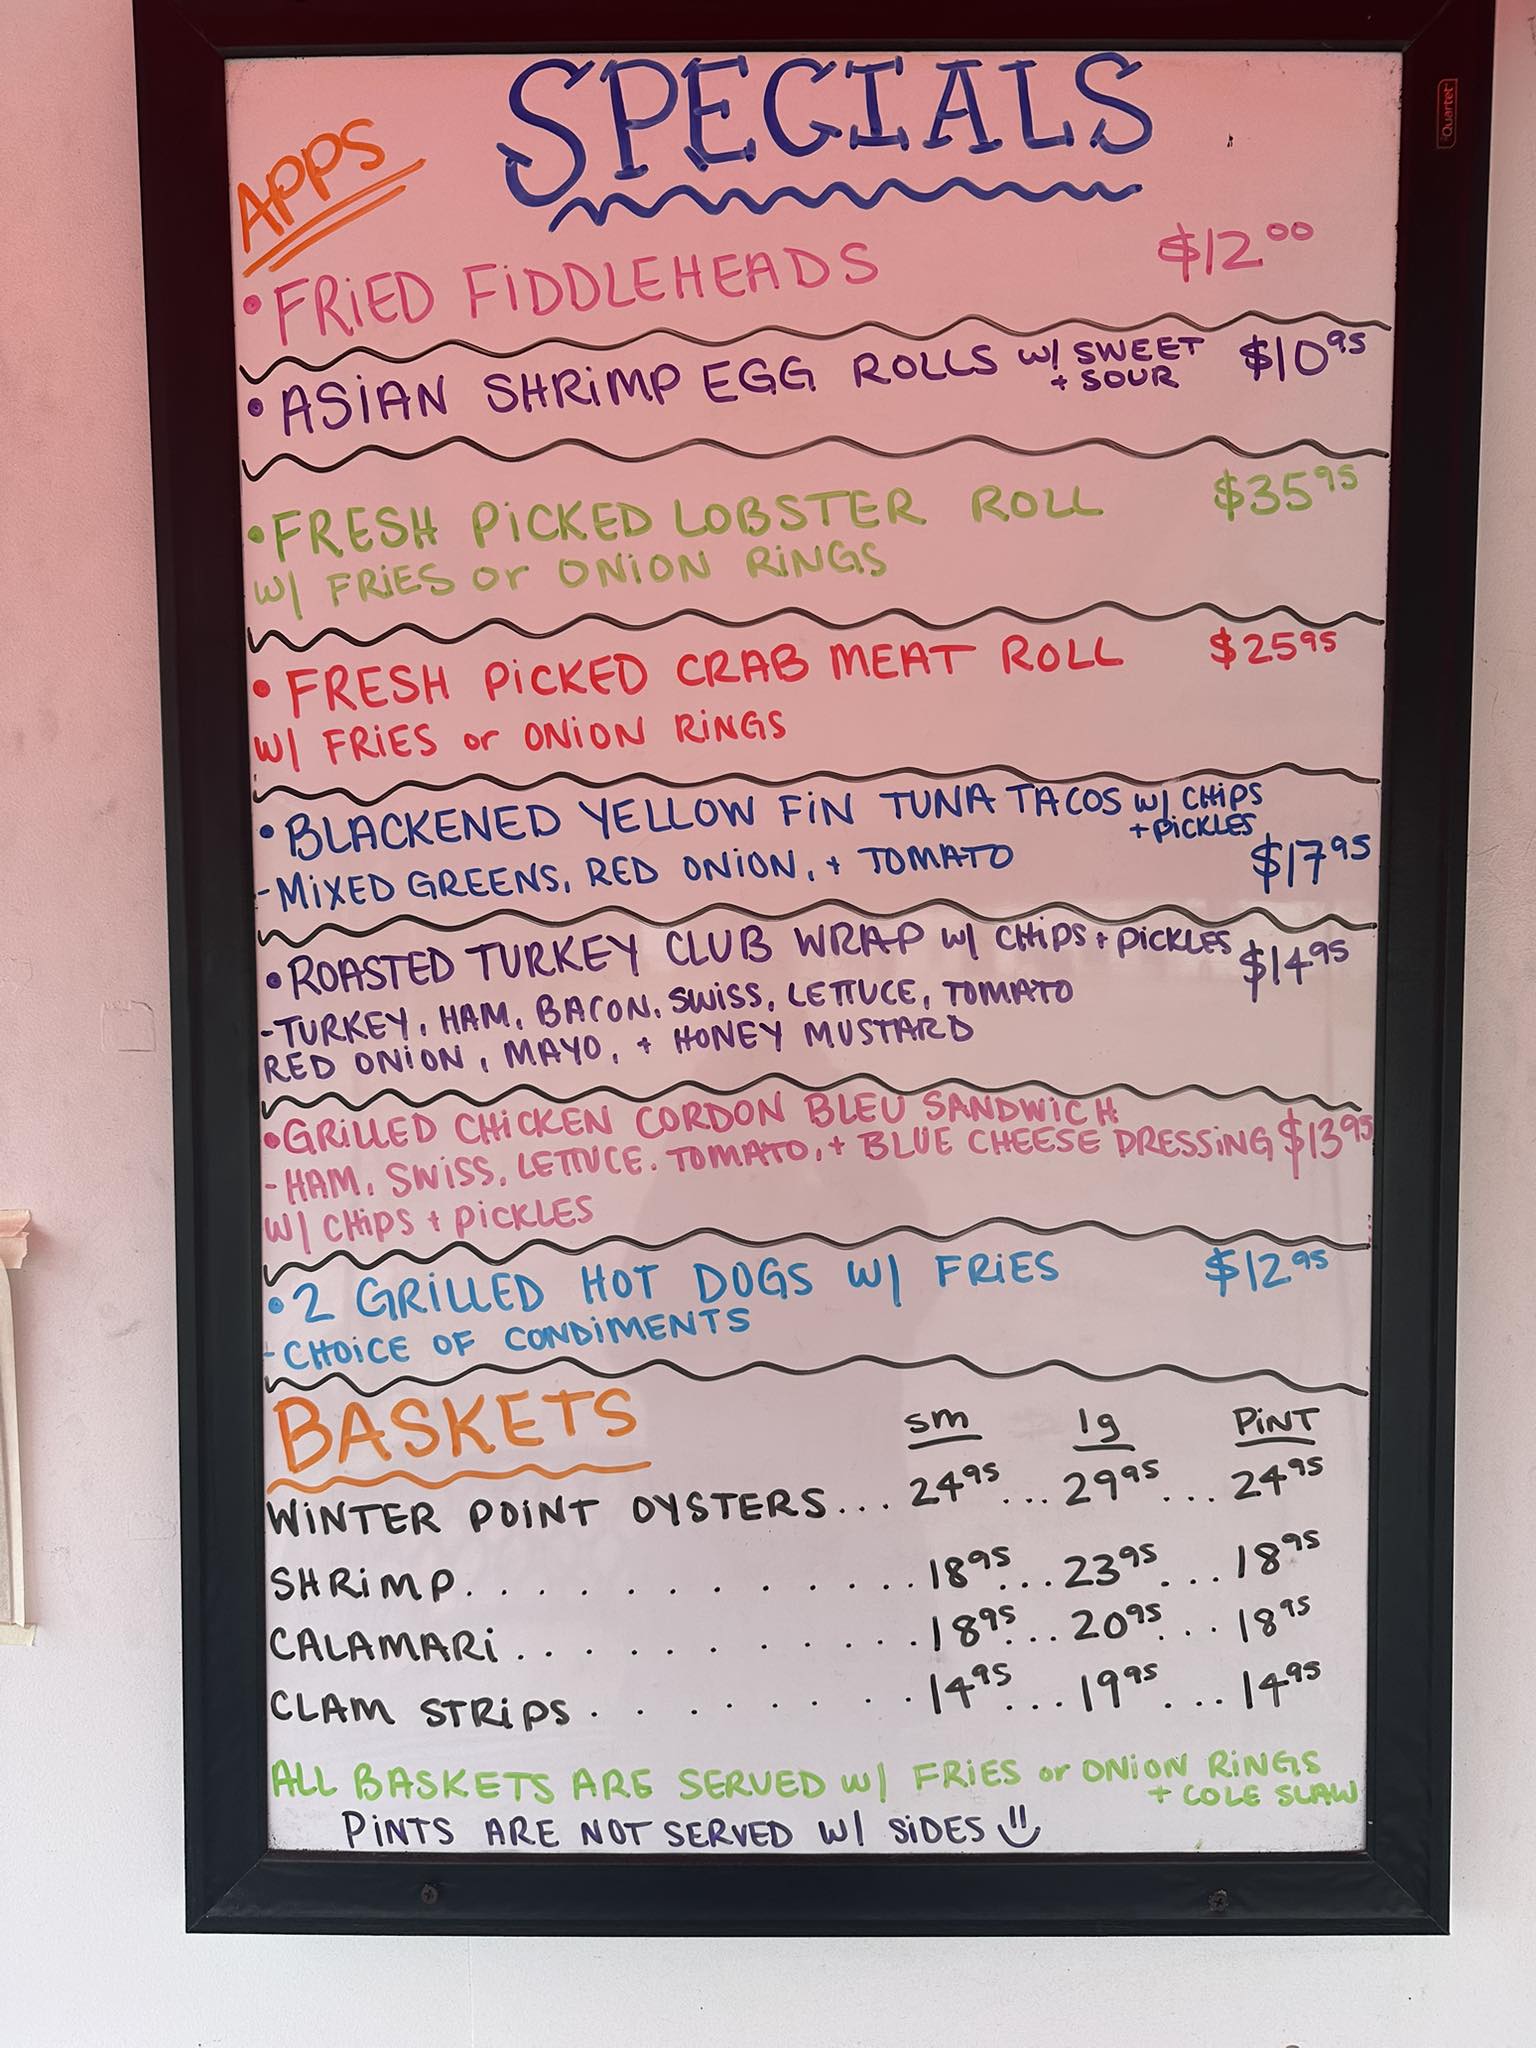 SPECIALS
APPS
• FRiED FiDDLEHEADS $12.00
• ASiAN SHRiMP EGG ROLLS w/ SWEET + SOUR $10.95
• FRESH PiCKED LOBSTER ROLL $35.95
w/ FRiES or ONiON RiNGS
• FRESH PiCKED CRAB MEAT ROLL $25.95
w/ FRiES or ONiON RiNGS
• BLACKENED YELLOW FiN TUNA TACOS w/ CHiPS + PiCKLES
- MiXED GREENS, RED ONiON, + TOMATO $17.95
• ROASTED TURKEY CLUB WRAP w/ CHiPS + PiCKLES $14.95
- TURKEY, HAM, BACON, SWiSS, LETTUCE, TOMATO
RED ONiON, MAYO, + HONEY MUSTARD
• GRiLLED CHiCKEN CORDON BLEU SANDWiCH
- HAM, SWiSS, LETTUCE, TOMATO, + BLUE CHEESE DRESSiNG $13.95
w/ CHiPS + PiCKLES
• 2 GRiLLED HOT DOGS w/ FRiES $12.95
- CHOiCE OF CONDiMENTS
BASKETS sm lg PiNT
WiNTER POiNT OYSTERS... 24.95 ... 29.95 ... 24.95
SHRiMP.............. 18.95 ... 23.95 ... 18.95
CALAMARi............ 18.95 ... 20.95 ... 18.95
CLAM STRiPS........ 14.95 ... 19.95 ... 14.95
ALL BASKETS ARE SERVED w/ FRiES or ONiON RiNGS
+ COLE SLAW
PiNTS ARE NOT SERVED w/ SiDES
Quartet